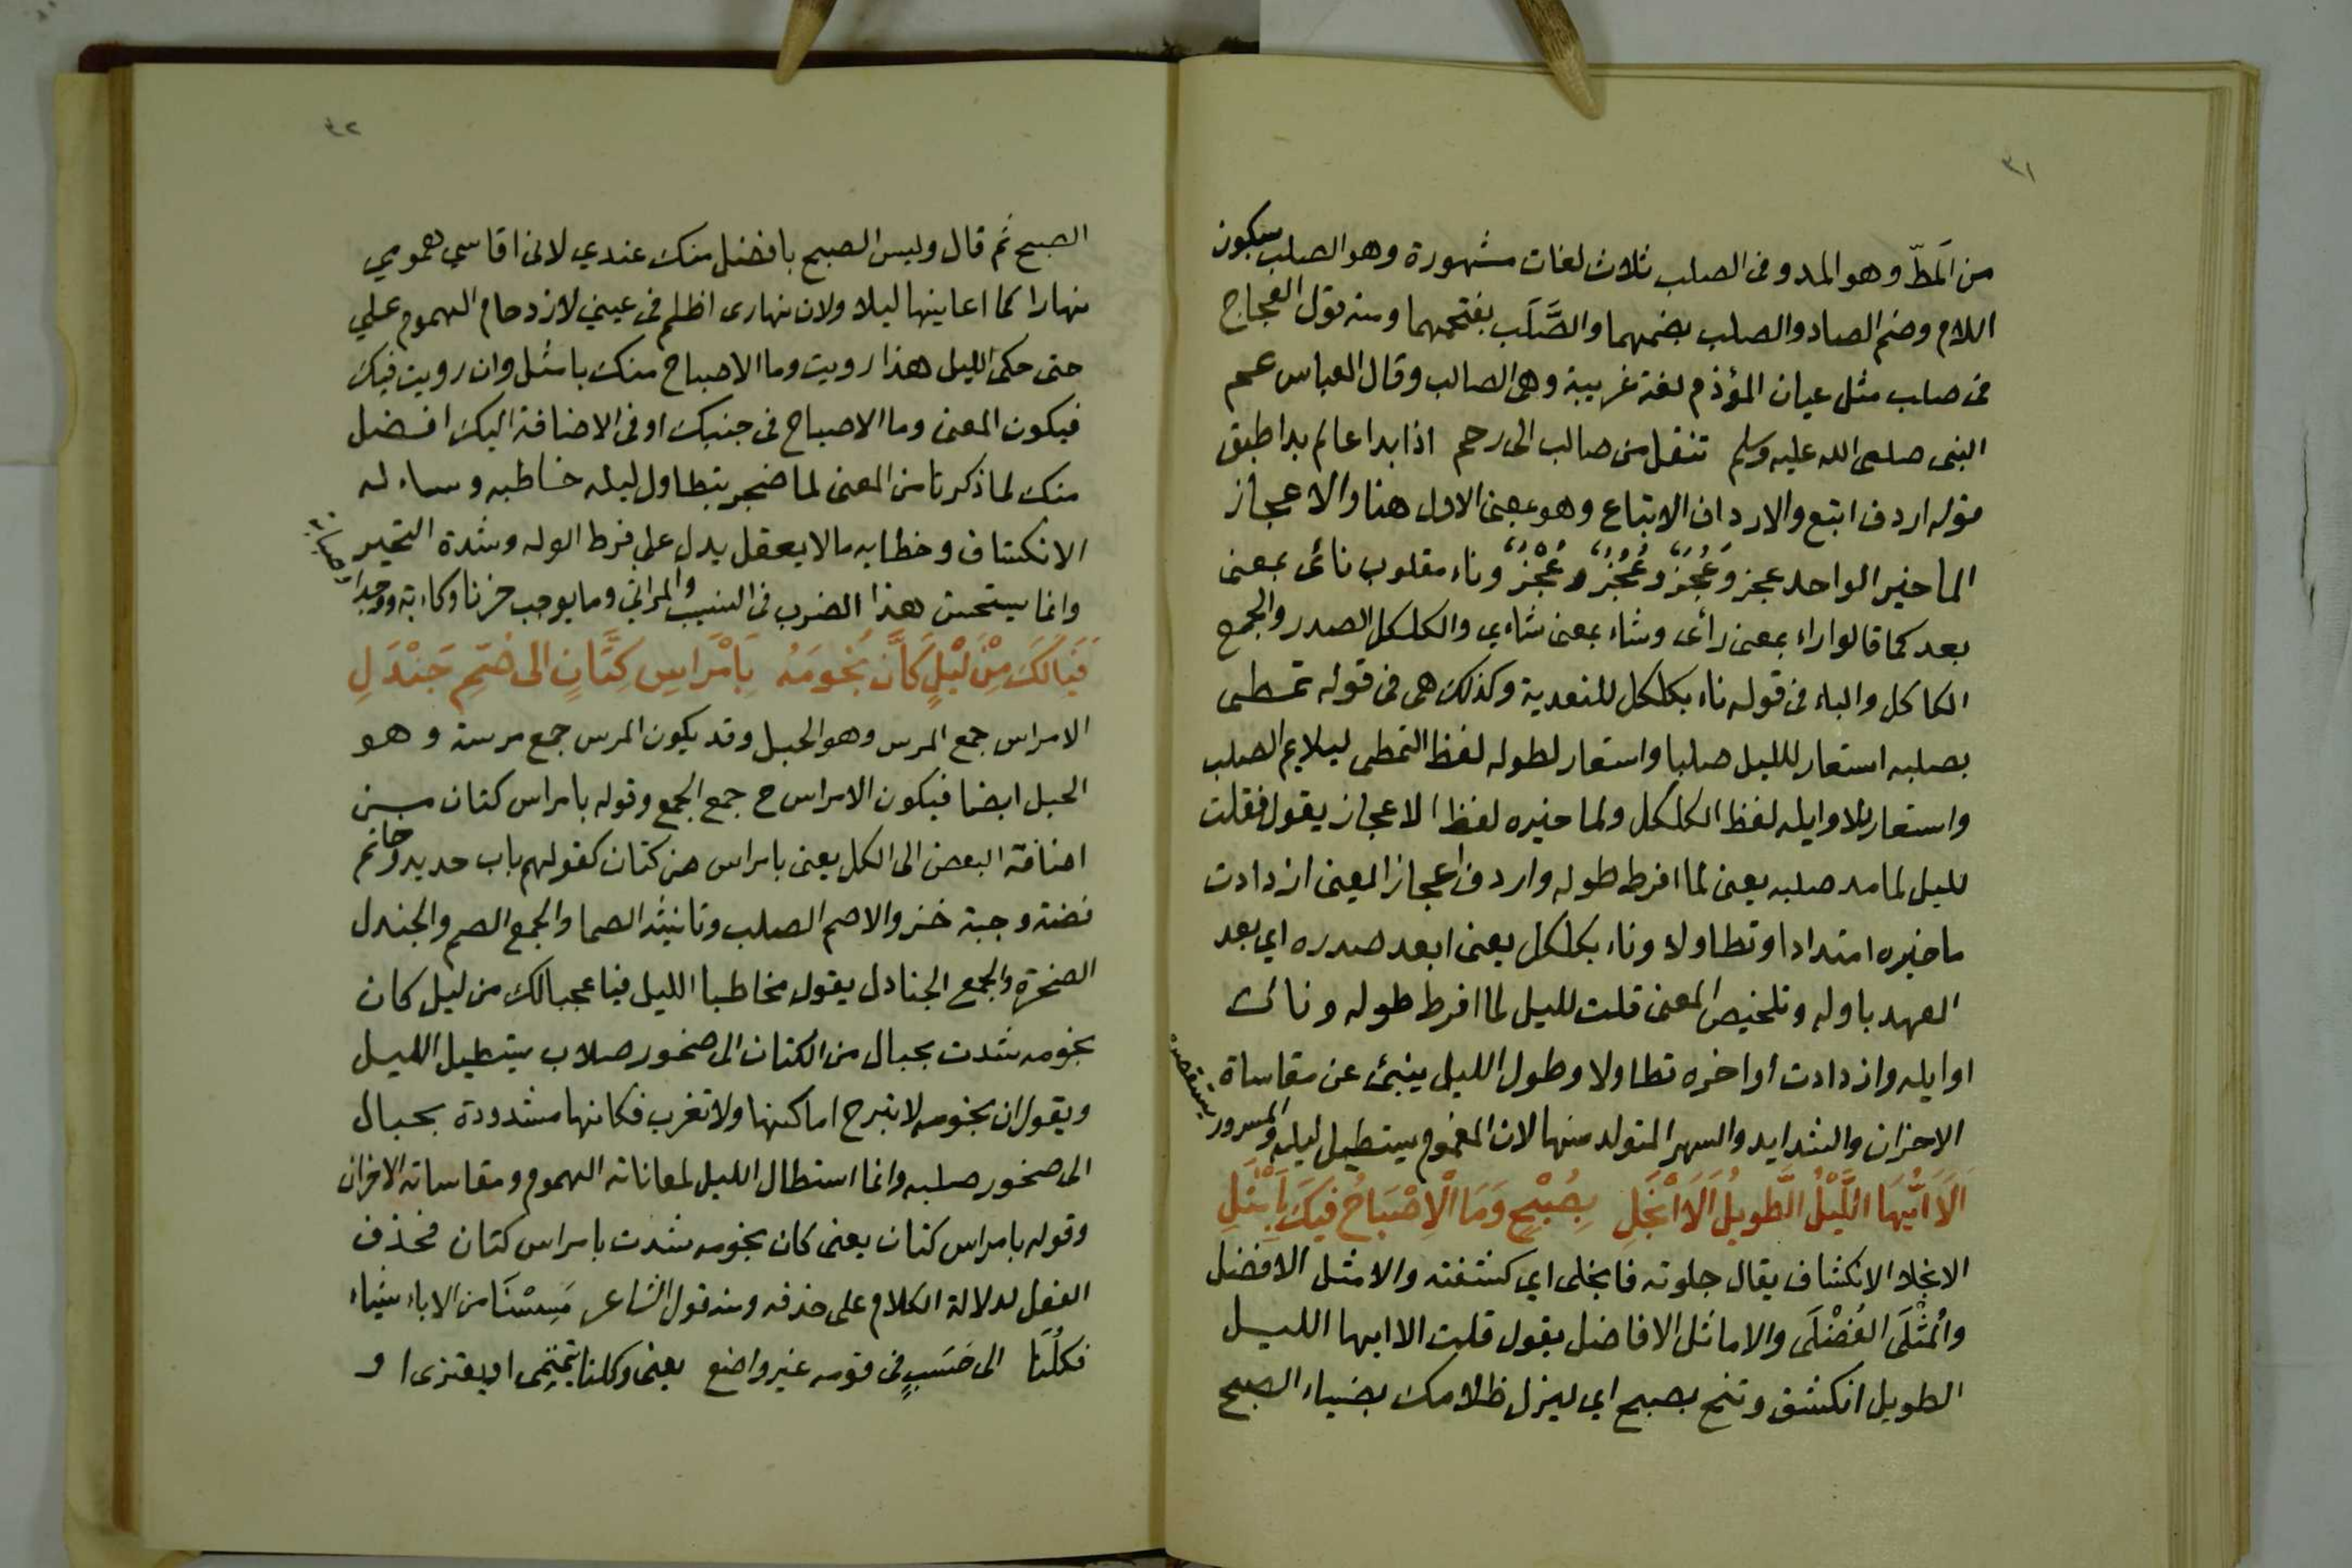 ٣١
من المَطّ وهو المد وفى الصلب ثلاث لغات مشهورة وهو الصلب بسكون
اللام وضم الصاد والصلب بضمهما والصَّلَب بفتحهما ومنه قول العجاج
فى صلب مثل عيان المؤدم لغة غريبة وهى الصالب وقال العباس عم
النبى صلى الله عليه وسلم تنقل من صالب الى رحم اذا بدا عالم بدا طبق
قوله اردف اتبع والارداف الاتباع وهو بمعنى الاول هنا والاعجاز
الماخير الواحد عجز وعَجُز وعُجُز وعُجْز وناء مقلوب نائ بمعنى
بعد كما قالوا راء بمعنى رأى وشاء بمعنى شاءي والكلكل الصدر والجمع
الكلاكل والباء فى قوله ناء بكلكل للتعدية وكذلك هى فى قوله تمطى
بصلبه استعار لليل صلبا واستعار لطوله لفظ التمطى ليلايم الصلب
واستعار للاوايله لفظ الكلكل ولماخيره لفظ الاعجاز يقول فقلت
لليل لما مد صلبه يعنى لما افرط طوله واردف اعجاز المعنى ازدادت
ماخيره امتدادا وتطاولا وناء بكلكل يعنى ابعد صدره اي بعد
العهد باوله وتلخيص المعنى قلت لليل لما افرط طوله وناءت
اوايله وازدادت اواخره تطاولا وطول الليل ينبئ عن مقاساة
الاحزان والشدايد والسهر المتولد منها لان المغموم يستطيل ليله والمسرور يستقصره
اَلَا اَيُّهَا اللَّيْلُ الطَّوِيلُ اَلَا انْجَلِ بِصُبْحٍ وَمَا الْاِصْبَاحُ فِيكَ بِاَمْثَلِ
الانجلا الانكشاف يقال جلوته فانجلى اي كشفته والامثل الافضل
والمُثْلَى الفُضْلَى والاماثل الافاضل يقول قلت الا ايها الليل
الطويل انكشف وتنح بصبح اي ليزل ظلامك بضياء الصبح
٣٢
الصبح ثم قال وليس الصبح بافضل منك عندي لانى اقاسي همومي
نهارا كما اعاينها ليلا ولان نهارى اظلم فى عيني لازدحام الهموم علي
حتى حكى الليل هذا رويت وما الاصباح منك بامثل وان رويت فيك
فيكون المعنى وما الاصباح فى جنبك او فى الاضافة اليك افضل
منك لما ذكرنا من المعنى لما ضجر بتطاول ليله خاطبه وساءله
الانكشاف وخطابه مالا يعقل يدل على فرط الوله وشدة التحير
وانما يستحسن هذا الضرب فى النسيب والمراثي وما يوجب حزنا وكاءبة ووجدا
فَيَالَكَ مِنْ لَيْلٍ كَاَنَّ نُجُومَهُ بِاَمْرَاسِ كِتَّانٍ الى صُمّ جَنْدَلِ
الامراس جمع المرس وهو الحبل وقد يكون المرس جمع مرسة وهو
الحبل ايضا فيكون الامراس ح جمع الجمع وقوله بامراس كتان من
اضافة البعض الى الكل يعنى بامراس من كتان كقولهم باب حديد وخاتم
فضة وجبة خز والاصم الصلب وتانيثه الصما والجمع الصم والجندل
الصخرة والجمع الجنادل يقول مخاطبا الليل فيا عجبا لك من ليل كان
نجومه شدت بحبال من الكتان الى صخور صلاب يستطيل الليل
ويقول ان نجومه لا تبرح اماكنها ولا تغرب فكانها مشدودة بحبال
الى صخور صلبه وانما استطال الليل لمعاناته الهموم ومقاساته الاحزان
وقوله بامراس كتان يعنى كان نجومه شدت بامراس كتان فحذف
الفعل لدلالة الكلام على حذفه ومنه قول الشاعر مَسِسْنَا من الاباء شيئا
فكلُّنَا الى حَسَبٍ فى قومه غير واضع يعنى وكلنا ينتمى او يعتزى او